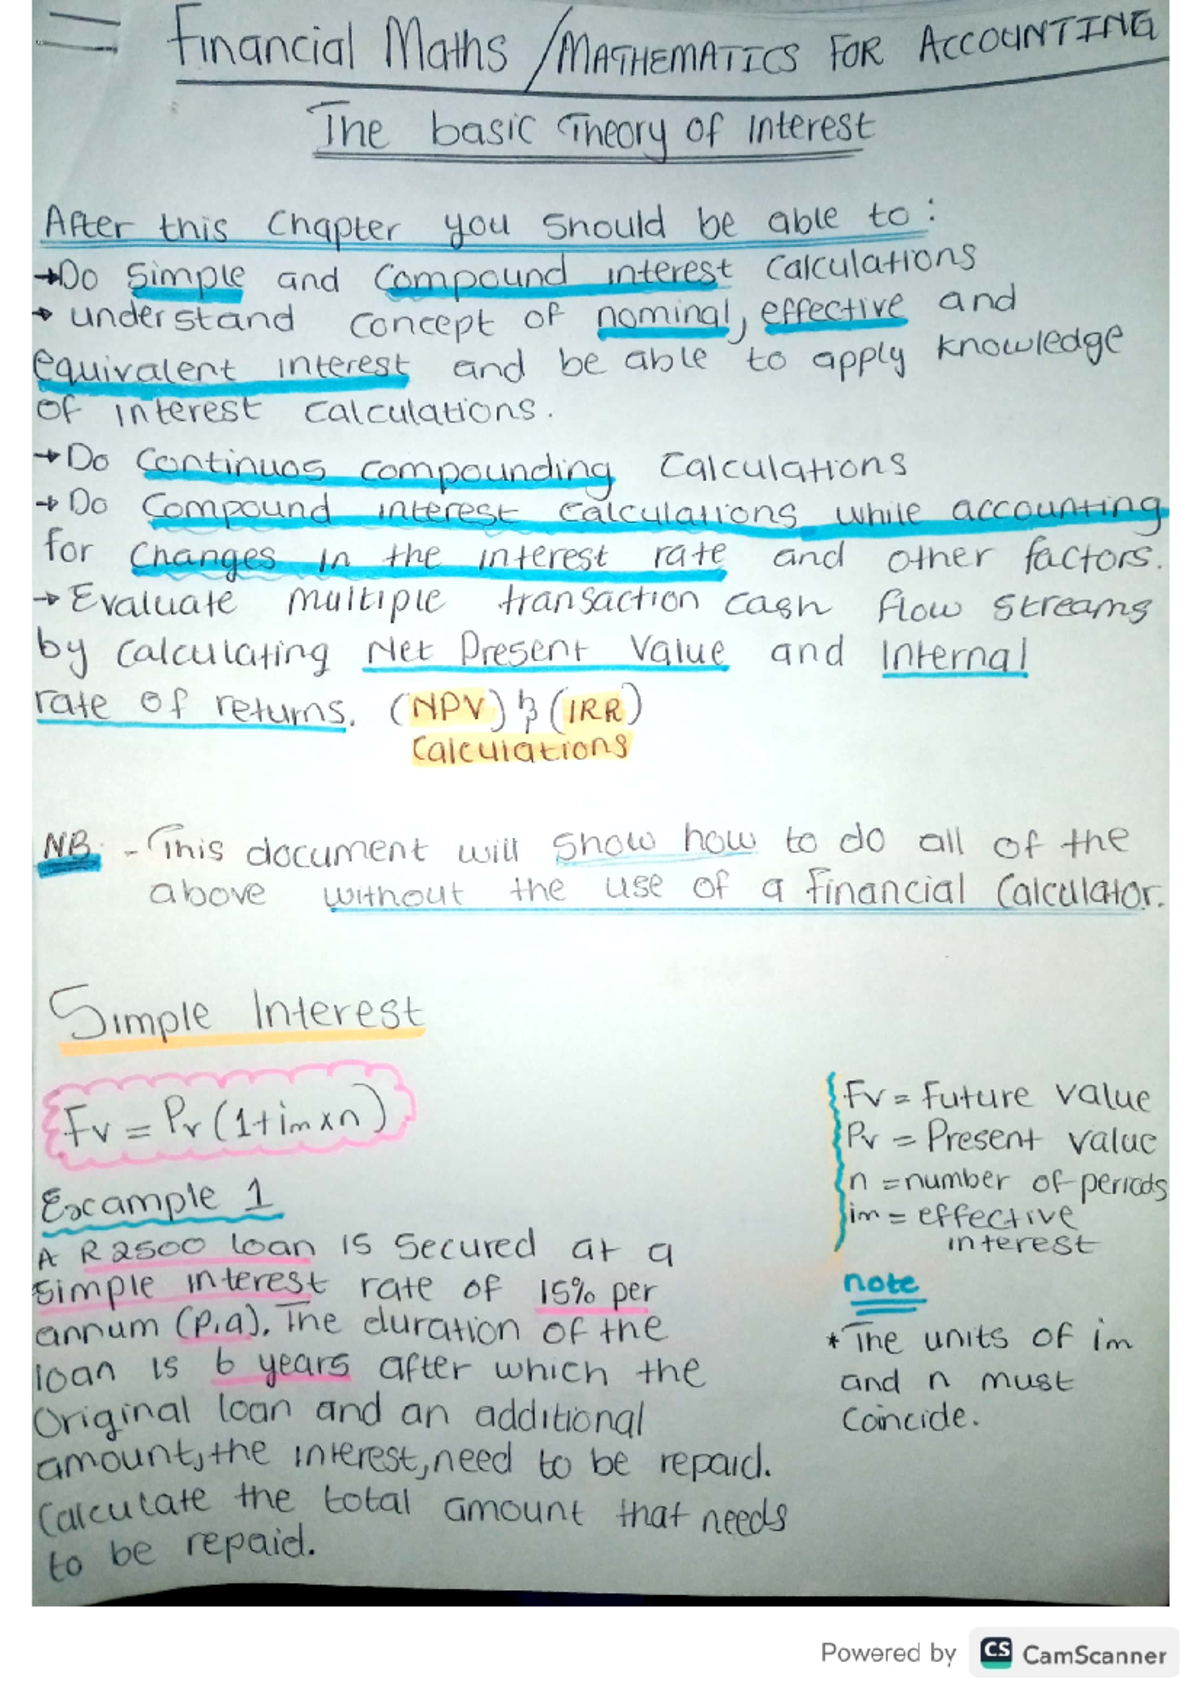 Financial Maths / MATHEMATICS FOR ACCOUNTING
The basic Theory of Interest
After this Chapter you should be able to:
→Do Simple and Compound interest Calculations
→ understand concept of nominal, effective and
equivalent interest and be able to apply knowledge
of interest calculations.
→Do Continuos compounding Calculations
→Do Compound interest Calculations while accounting
for Changes in the interest rate and other factors.
→Evaluate multiple transaction cash flow streams
by calculating Net Present Value and Internal
rate of returns. (NPV) & (IRR)
Calculations
NB. - This document will show how to do all of the
above without the use of a financial Calculator.
Simple Interest
Fv = Pv (1+im×n)
Fv = Future value
Pv = Present value
n = number of periods
im = effective
interest
note
* The units of im
and n must
Coincide.
Example 1
A R2500 loan is secured at a
Simple interest rate of 15% per
annum (p.a). The duration of the
loan is 6 years after which the
Original loan and an additional
amount, the interest, need to be repaid.
Calculate the total amount that needs
to be repaid.
Powered by CS CamScanner